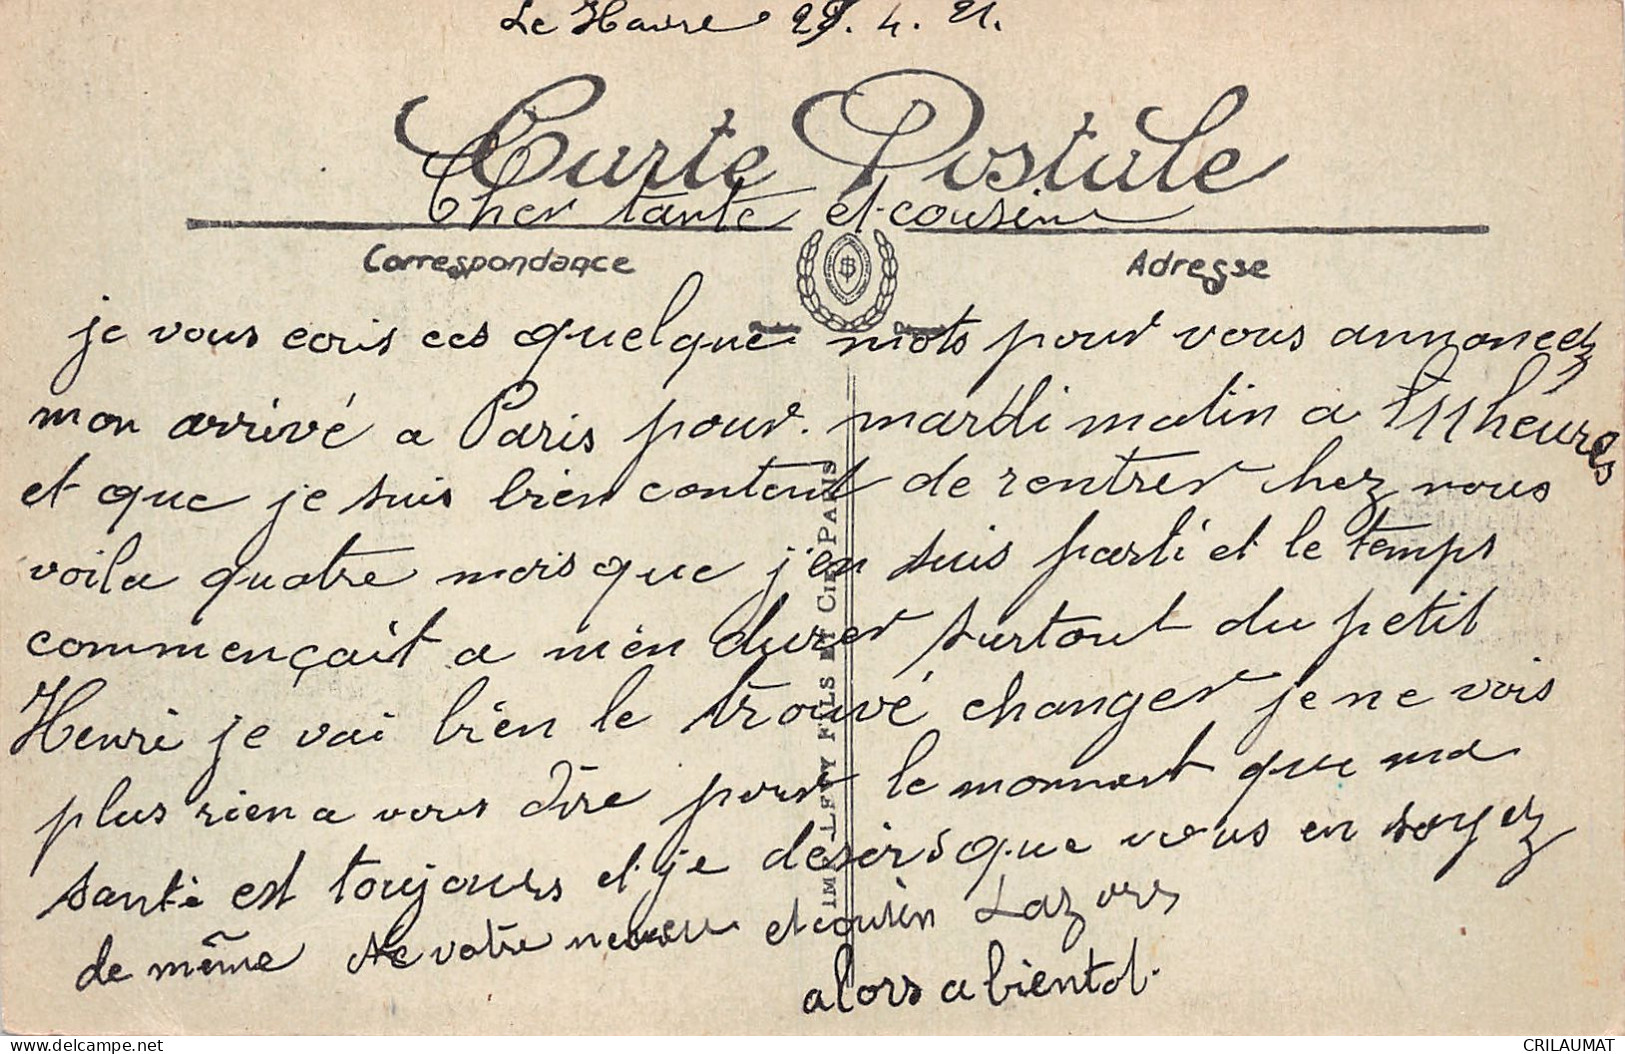 Le Havre 4. 21.
Carte Postale
Cher tante et cousin
Correspondance Adresse
je vous ecris ces quelque mots pour vous annoncez
mon arrivé a Paris pour mardi matin a 11 heures
et que je suis bien content de rentrer chez vous
voila quatre mois que j'en suis parti et le temps
commençait a m'en durer surtout du petit
Henri je vai bien le trouvé changer je ne vois
plus rien a vous dire pour le momment que ma
santé est toujours et je desirs que vous en soyez
de même de votre neveu et cousin
alors a bientot.
IMP. LEVY FILS ET CIE PARIS
CRILAUMAT
delcampe.net